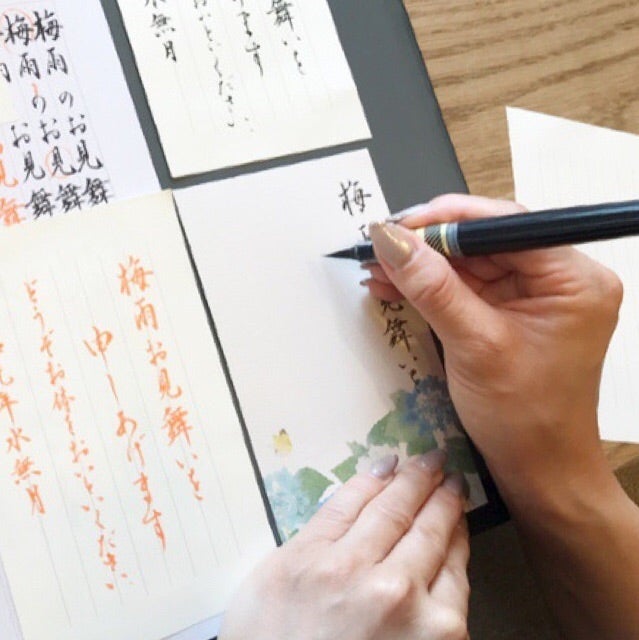 舞いを
ます
おいといください
水無月
梅雨のお見舞
梅雨のお見舞
見舞
梅
見舞いを
梅雨お見舞いを
申しあげます
どうぞお体をおいといください
元年水無月